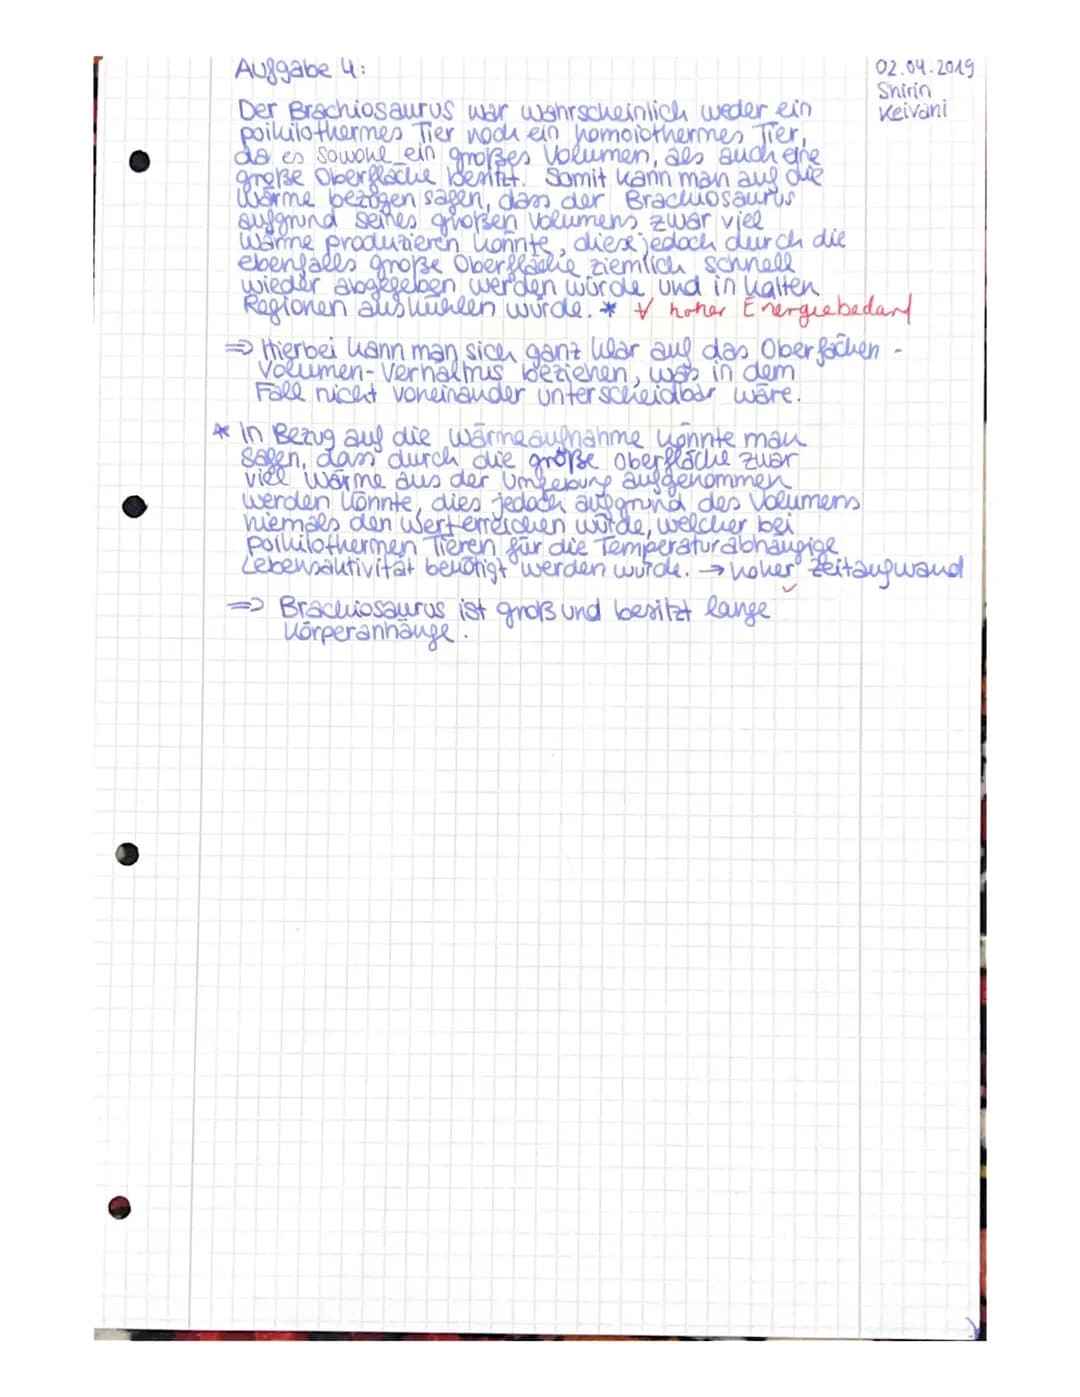 Aufgabe 4:
02.04.2019
Shirin
Keivani
Der Brachiosaurus war wahrscheinlich weder ein
poikilothermes Tier noch ein homoiothermes Tier,
da es sowohl ein großes Volumen, als auch eine
große Oberfläche besitzt. Somit kann man auf die
Wärme bezogen sagen, dass der Brachiosaurus
aufgrund seines großen Volumens zwar viel
Wärme produzieren könnte, diese jedoch durch die
ebenfalls große Oberfläche ziemlich schnell
wieder abgegeben werden würde und in kalten
Regionen auskühlen würde. * √ hoher Energiebedarf
⇒ Hierbei kann man sich ganz klar auf das Oberfächen-
Volumen-Verhältnis beziehen, was in dem
Fall nicht voneinander unterscheidbar wäre.
* In Bezug auf die Wärmeaufnahme könnte man
sagen, dass durch die größe Oberfläche zwar
viel Wärme aus der Umgebung aufgenommen
werden könnte, dies jedoch aufgrund des Volumens
niemals den Wert erreichen würde, welcher bei
poikilothermen Tieren für die Temperaturabhängige
Lebensaktivität benötigt werden würde. → hoher Zeitaufwand
⇒ Brachiosaurus ist groß und besitzt lange
Körperanhänge.